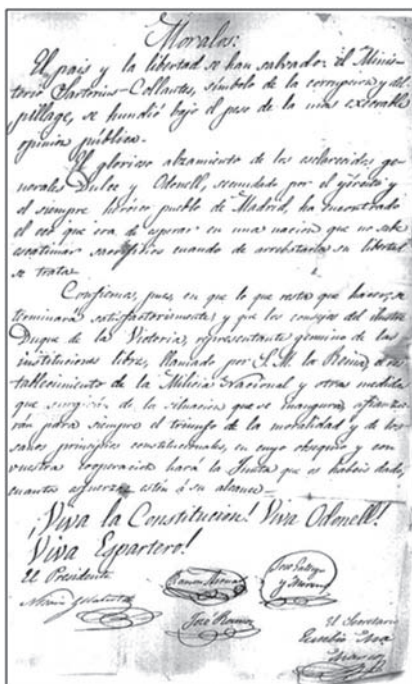 Morales:
El pais y la libertad se han salvado: el Minis-
terio Sartorius-Collantes, símbolo de la corrupcion y del
pillage, se hundió bajo el peso de la mas execrable
opinion pública.
El glorioso alzamiento de los esclarecidos ge-
nerales Dulce y Odonell, secundado por el ejército y
el siempre heróico pueblo de Madrid, ha encontrado
el eco que era de esperar en una nacion que no sabe
escatimar sacrificios cuando de arrebatarla su libertad
se trata.
Confiemos, pues, en que lo que resta que hacer, se
terminará satisfactoriamente; y que los consejos del ilustre
Duque de la Victoria, representante genuino de las
instituciones libres, llamado por S. M. la Reina, el res-
tablecimiento de la Milicia Nacional y otras medidas
que surgirán de la situacion que se inaugura, afianza-
rán para siempre el triunfo de la moralidad y de los
sanos principios constitucionales, en cuyo obsequio y con
vuestra cooperacion hará la Junta que os habeis dado,
cuantos esfuerzos estén á su alcance.
¡Viva la Constitucion! Viva Odonell!
Viva Espartero!
El Presidente
Ramon
José
y Moreno
José
El Secretario
Eusebio